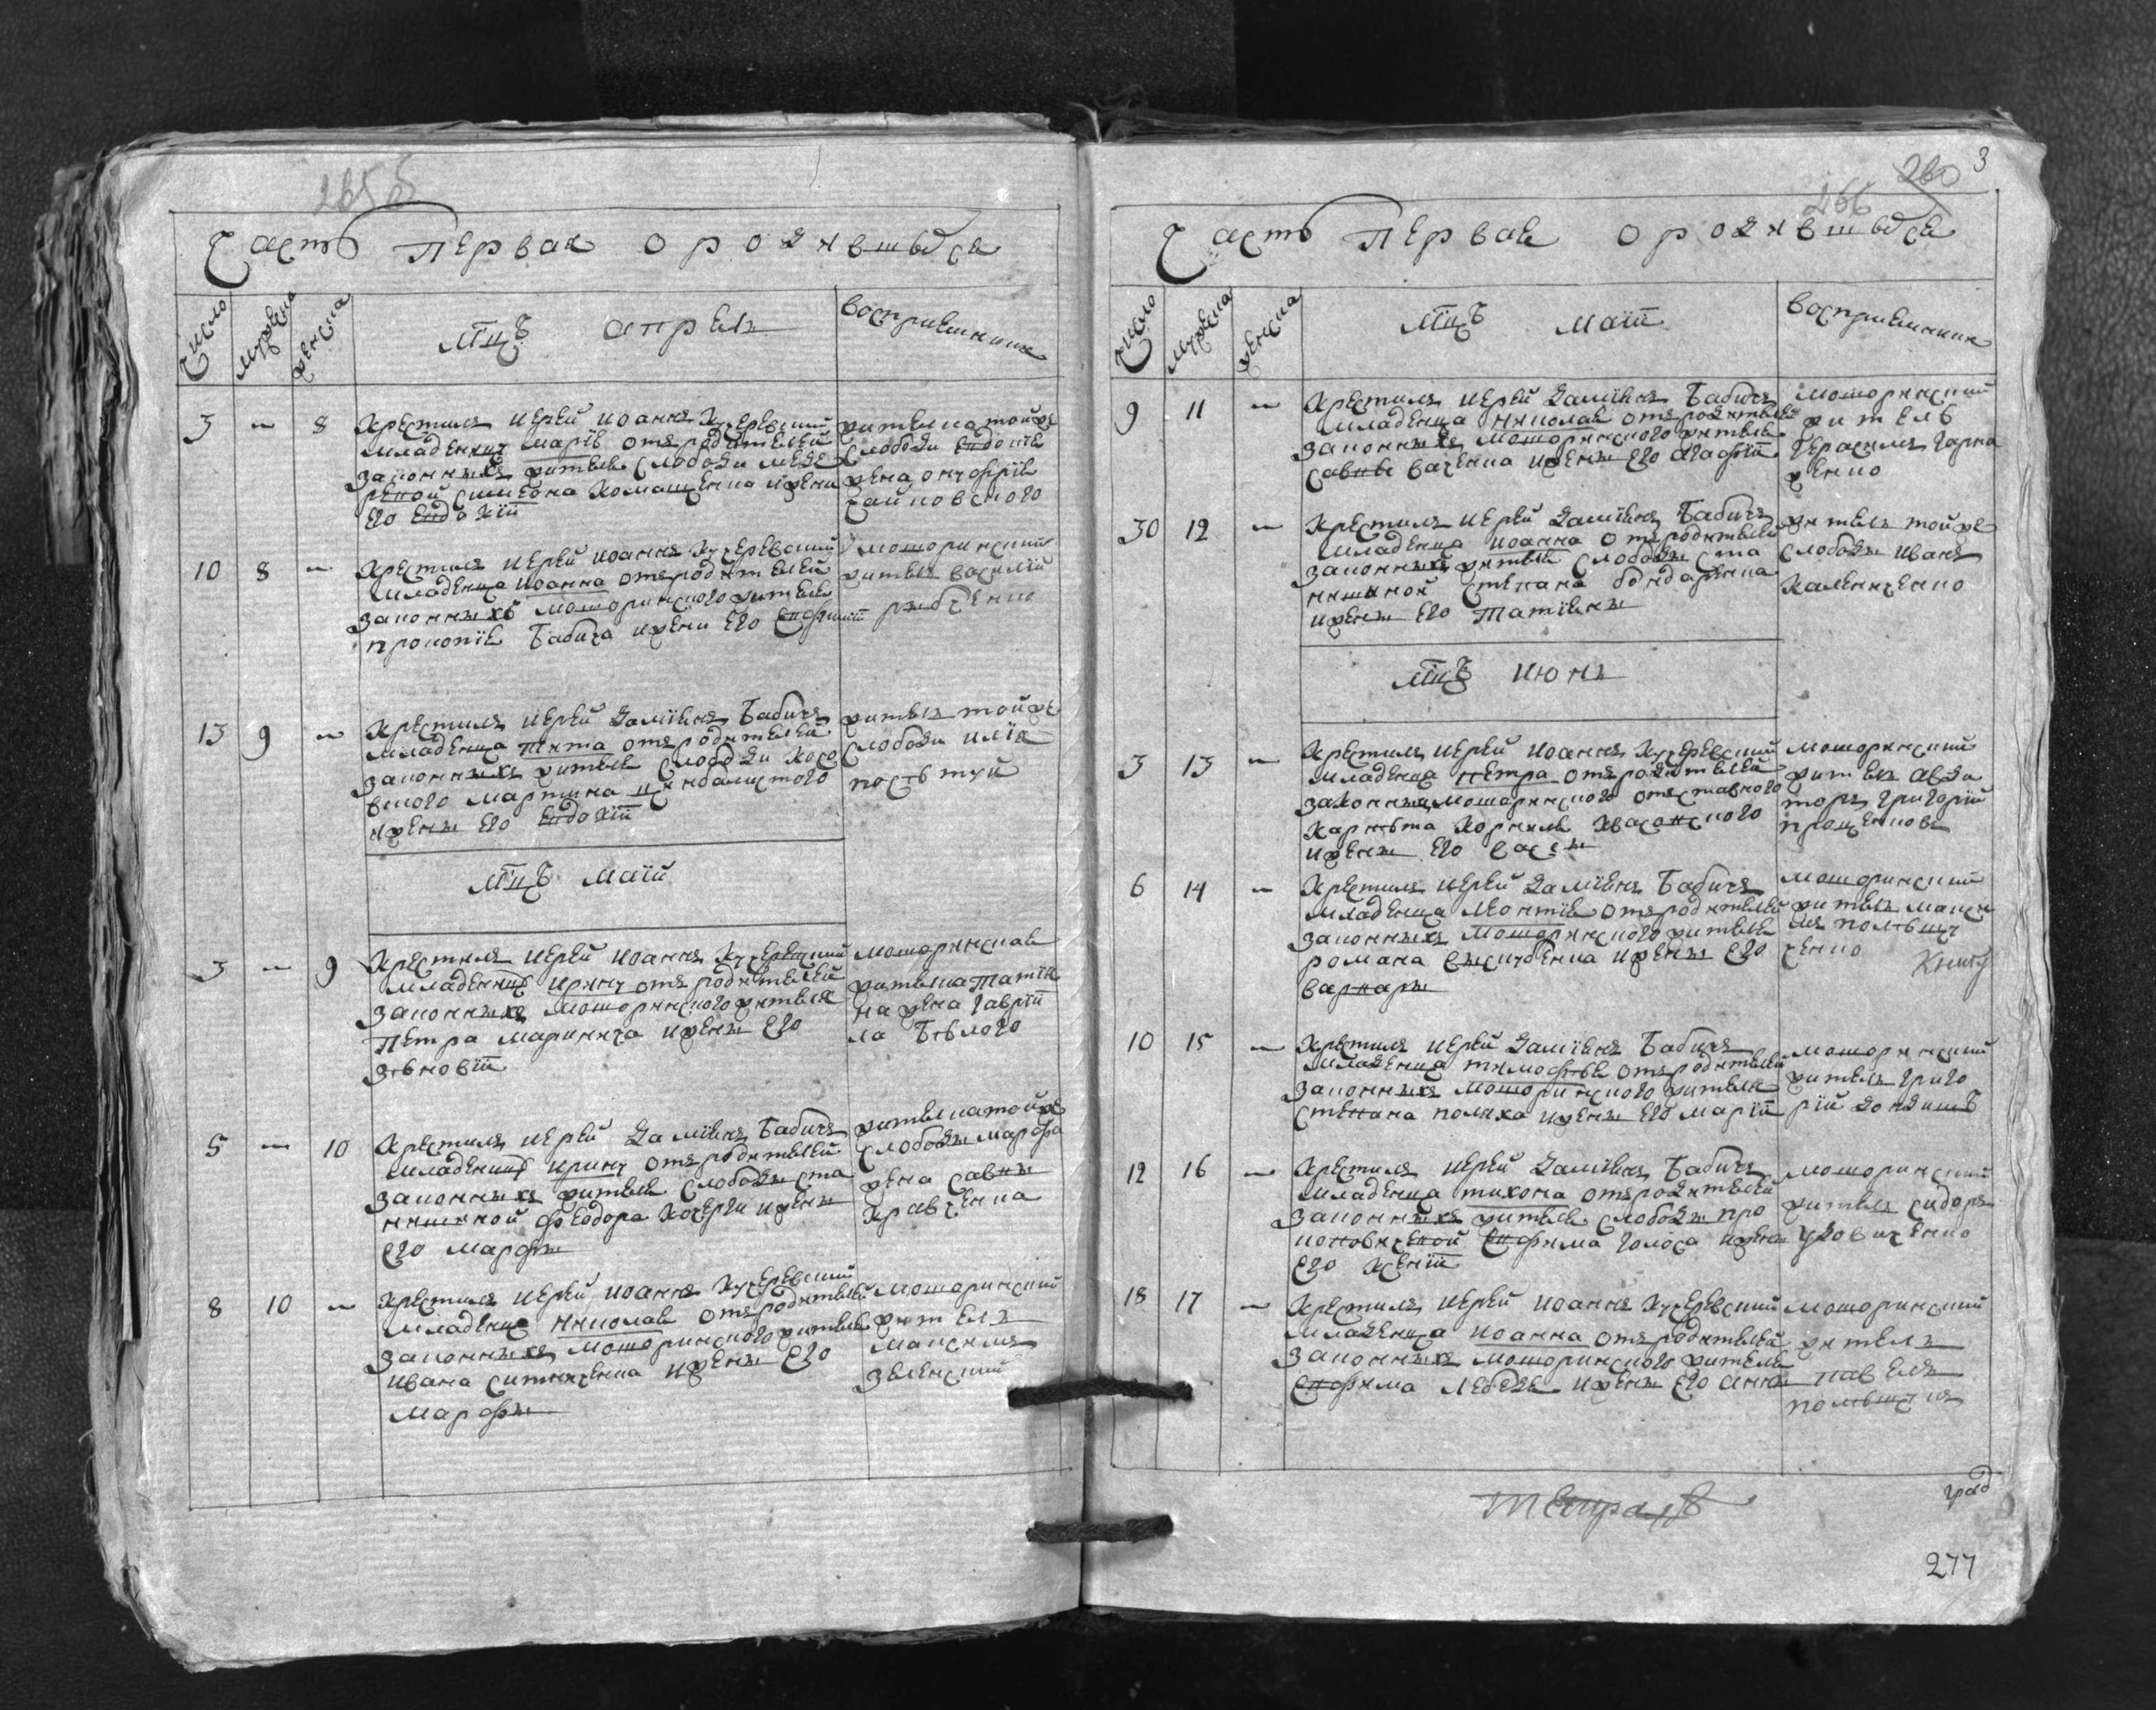 265 б
Часть Первая о родившыхся
число мужеска женска Мцъ апрель восприемники
3 – 8 Крестилъ иерей иоаннъ Кучеревский
младеницу марію отъ родителей
законныхъ жителя слободы
симеона Комашенка и жени
его Евдокіи
жителка тойже
слободы Евдокія
жена онуфрія
сайковского
10 8 – Крестилъ иерей иоаннъ Кучеревский
младенца иоанна отъ родителей
законныхъ моторинского жителя
прокопія Бабича и жени его Ефиміи
моторинский
житель василий
рябченко
13 9 – Крестилъ иерей Даміянъ Бабичъ
младенца тита отъ родителей
законныхъ жителя слободи косо
вского мартина цимбалистого
и жены его Евдокіи
житель тойже
слободи илія
постътуй
Мцъ маїй
3 – 9 Крестилъ иерей иоаннъ Кучеревский
младеницу ирину отъ родителей
законныхъ моторинского жителя
петра маринича и жены его
зѣновіи
моторинская
жителка татія
на жена гаврїи
ла Бѣлого
5 – 10 Крестилъ иерей Даміянъ Бабичъ
младеницу ирину отъ родителей
законныхъ жителя слободы ста
нишиной феодора Кочерги и жены
его марфы
жителка тойже
слободы марфа
жена савки
кравченка
8 10 – Крестилъ иерей иоаннъ Кучеревский
младенца николая отъ родителей
законныхъ моторинского жителя
ивана ситниченка и жены его
марфы
моторинский
житель
максимъ
зеленский
260 3
266
Часть Первая о родившыхся
число мужеска женска Мцъ маїй восприемники
9 11 – Крестилъ иерей Даміянъ Бабичъ
младенца николая отъ родителей
законныхъ моторинского жителя
саввы ваченка и жены его агафіи
моторинский
житель
герасимъ гарка
женко
30 12 – Крестилъ иерей Даміянъ Бабичъ
младенца иоанна отъ родителей
законныхъ жителя слободы ста
нишиной степана бондаренка
и жены его Татіяны
житель тойже
слободы иванъ
калениченко
Мцъ июнь
3 13 – Крестилъ иерей иоаннъ Кучеревский
младенца петра отъ родителей
законныхъ моторинского отставного
карнета корнилія
и жены его
моторинский
житель авди
торъ григорий
проценковъ
6 14 – Крестилъ иерей Даміянъ Бабичъ
младенца леонтія отъ родителей
законныхъ моторинского жителя
романа и жены его
варвары
моторинский
житель макси
мъ полѣщу
ченко
Книгу
10 15 – Крестилъ иерей Даміянъ Бабичъ
младенца тимофѣя отъ родителей
законныхъ моторинского жителя
степана поляка и жены его маріи
моторинский
житель григо
рій дондишъ
12 16 – Крестилъ иерей Даміянъ Бабичъ
младенца тихона отъ родителей
законныхъ жителя слободы про
коповиченой Ефима голоса и жени
его ксеніи
моторинский
житель сидоръ
удовиченко
18 17 – Крестилъ иерей иоаннъ Кучеревский
младенца иоанна отъ родителей
законныхъ моторинского жителя
Ефима лебедя и жены его анны
моторинский
житель
павелъ
полѣщукъ
град
277